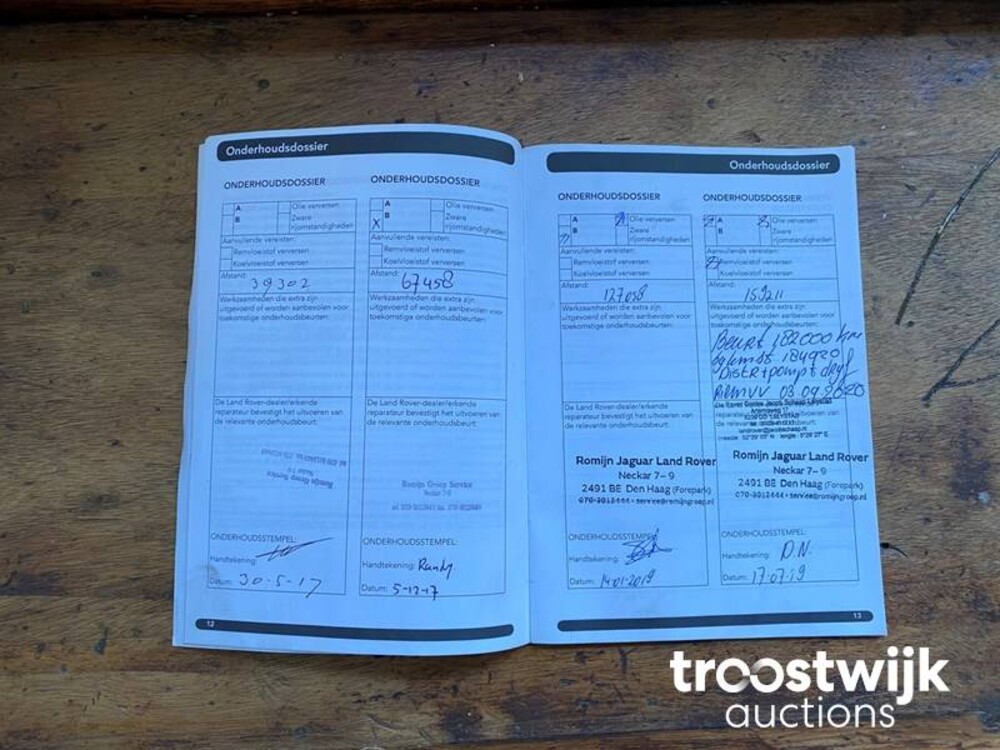 Onderhoudsdossier
ONDERHOUDSDOSSIER
A
Olie verversen
B
Zware
rijomstandigheden
Aanvullende vereisten:
Remvloeistof verversen
Koelvloeistof verversen
Afstand:
39302
Werkzaamheden die extra zijn
uitgevoerd of worden aanbevolen voor
toekomstige onderhoudsbeurten:
De Land Rover-dealer/erkende
reparateur bevestigt het uitvoeren van
de relevante onderhoudsbeurt:
Romijn Groep Service
Neckar 7-9
ONDERHOUDSSTEMPEL:
Handtekening:
Datum: 30-5-17
12
ONDERHOUDSDOSSIER
A
Olie verversen
X B
Zware
rijomstandigheden
Aanvullende vereisten:
Remvloeistof verversen
Koelvloeistof verversen
Afstand:
67458
Werkzaamheden die extra zijn
uitgevoerd of worden aanbevolen voor
toekomstige onderhoudsbeurten:
De Land Rover-dealer/erkende
reparateur bevestigt het uitvoeren van
de relevante onderhoudsbeurt:
Romijn Groep Service
Neckar 7-9
ONDERHOUDSSTEMPEL:
Handtekening: Randy
Datum: 5-12-17
Onderhoudsdossier
ONDERHOUDSDOSSIER
A
Olie verversen
B
Zware
rijomstandigheden
Aanvullende vereisten:
Remvloeistof verversen
Koelvloeistof verversen
Afstand:
127058
Werkzaamheden die extra zijn
uitgevoerd of worden aanbevolen voor
toekomstige onderhoudsbeurten:
De Land Rover-dealer/erkende
reparateur bevestigt het uitvoeren van
de relevante onderhoudsbeurt:
Romijn Jaguar Land Rover
Neckar 7-9
2491 BE Den Haag (Forepark)
070-3012444 - service@romijngroep.nl
ONDERHOUDSSTEMPEL:
Handtekening:
Datum: 14-01-2019
ONDERHOUDSDOSSIER
A
Olie verversen
B
Zware
rijomstandigheden
Aanvullende vereisten:
Remvloeistof verversen
Koelvloeistof verversen
Afstand:
159211
Werkzaamheden die extra zijn
uitgevoerd of worden aanbevolen voor
toekomstige onderhoudsbeurten:
Beurt 182000 km
184920
Distr + pomp +
Remvv 03 09 2020
Romijn Jaguar Land Rover
Neckar 7-9
2491 BE Den Haag (Forepark)
070-3012444 - service@romijngroep.nl
ONDERHOUDSSTEMPEL:
Handtekening: D.N.
Datum: 17-07-19
13
troostwijk
auctions